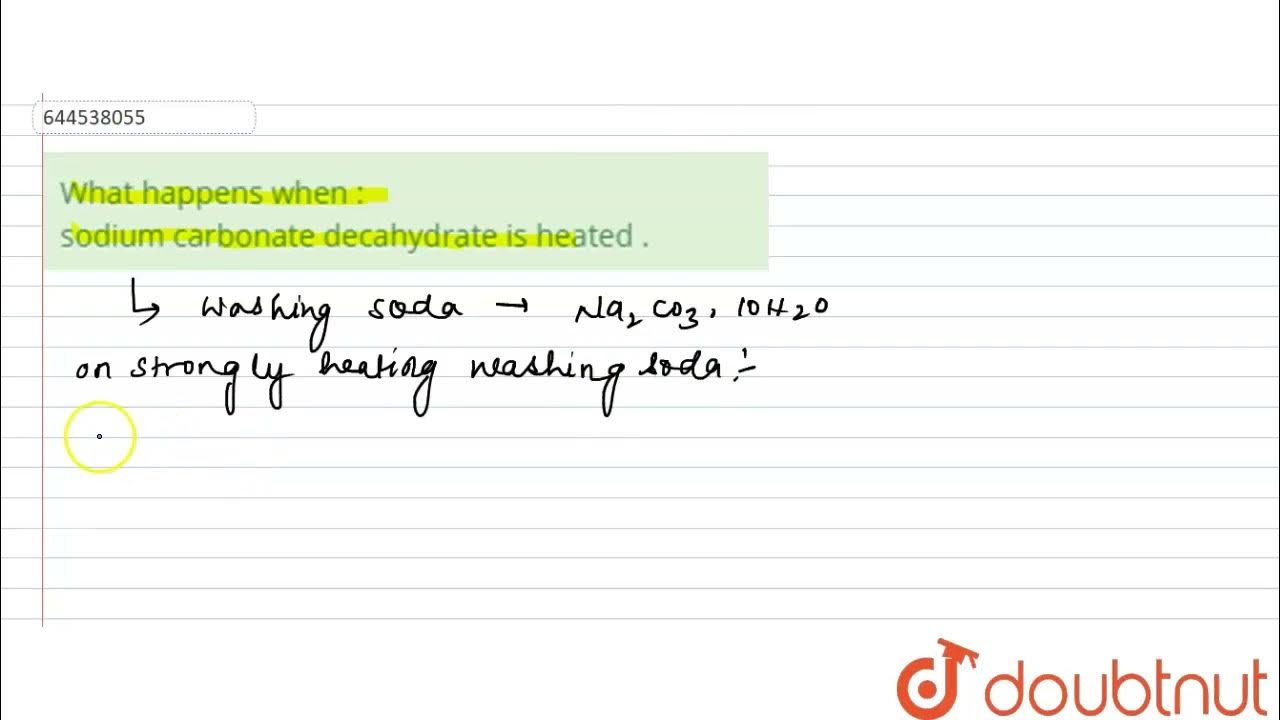 644538055
What happens when :
sodium carbonate decahydrate is heated .
↳ washing soda → Na₂CO₃. 10H₂O
on strongly heating washing soda :-
doubtnut